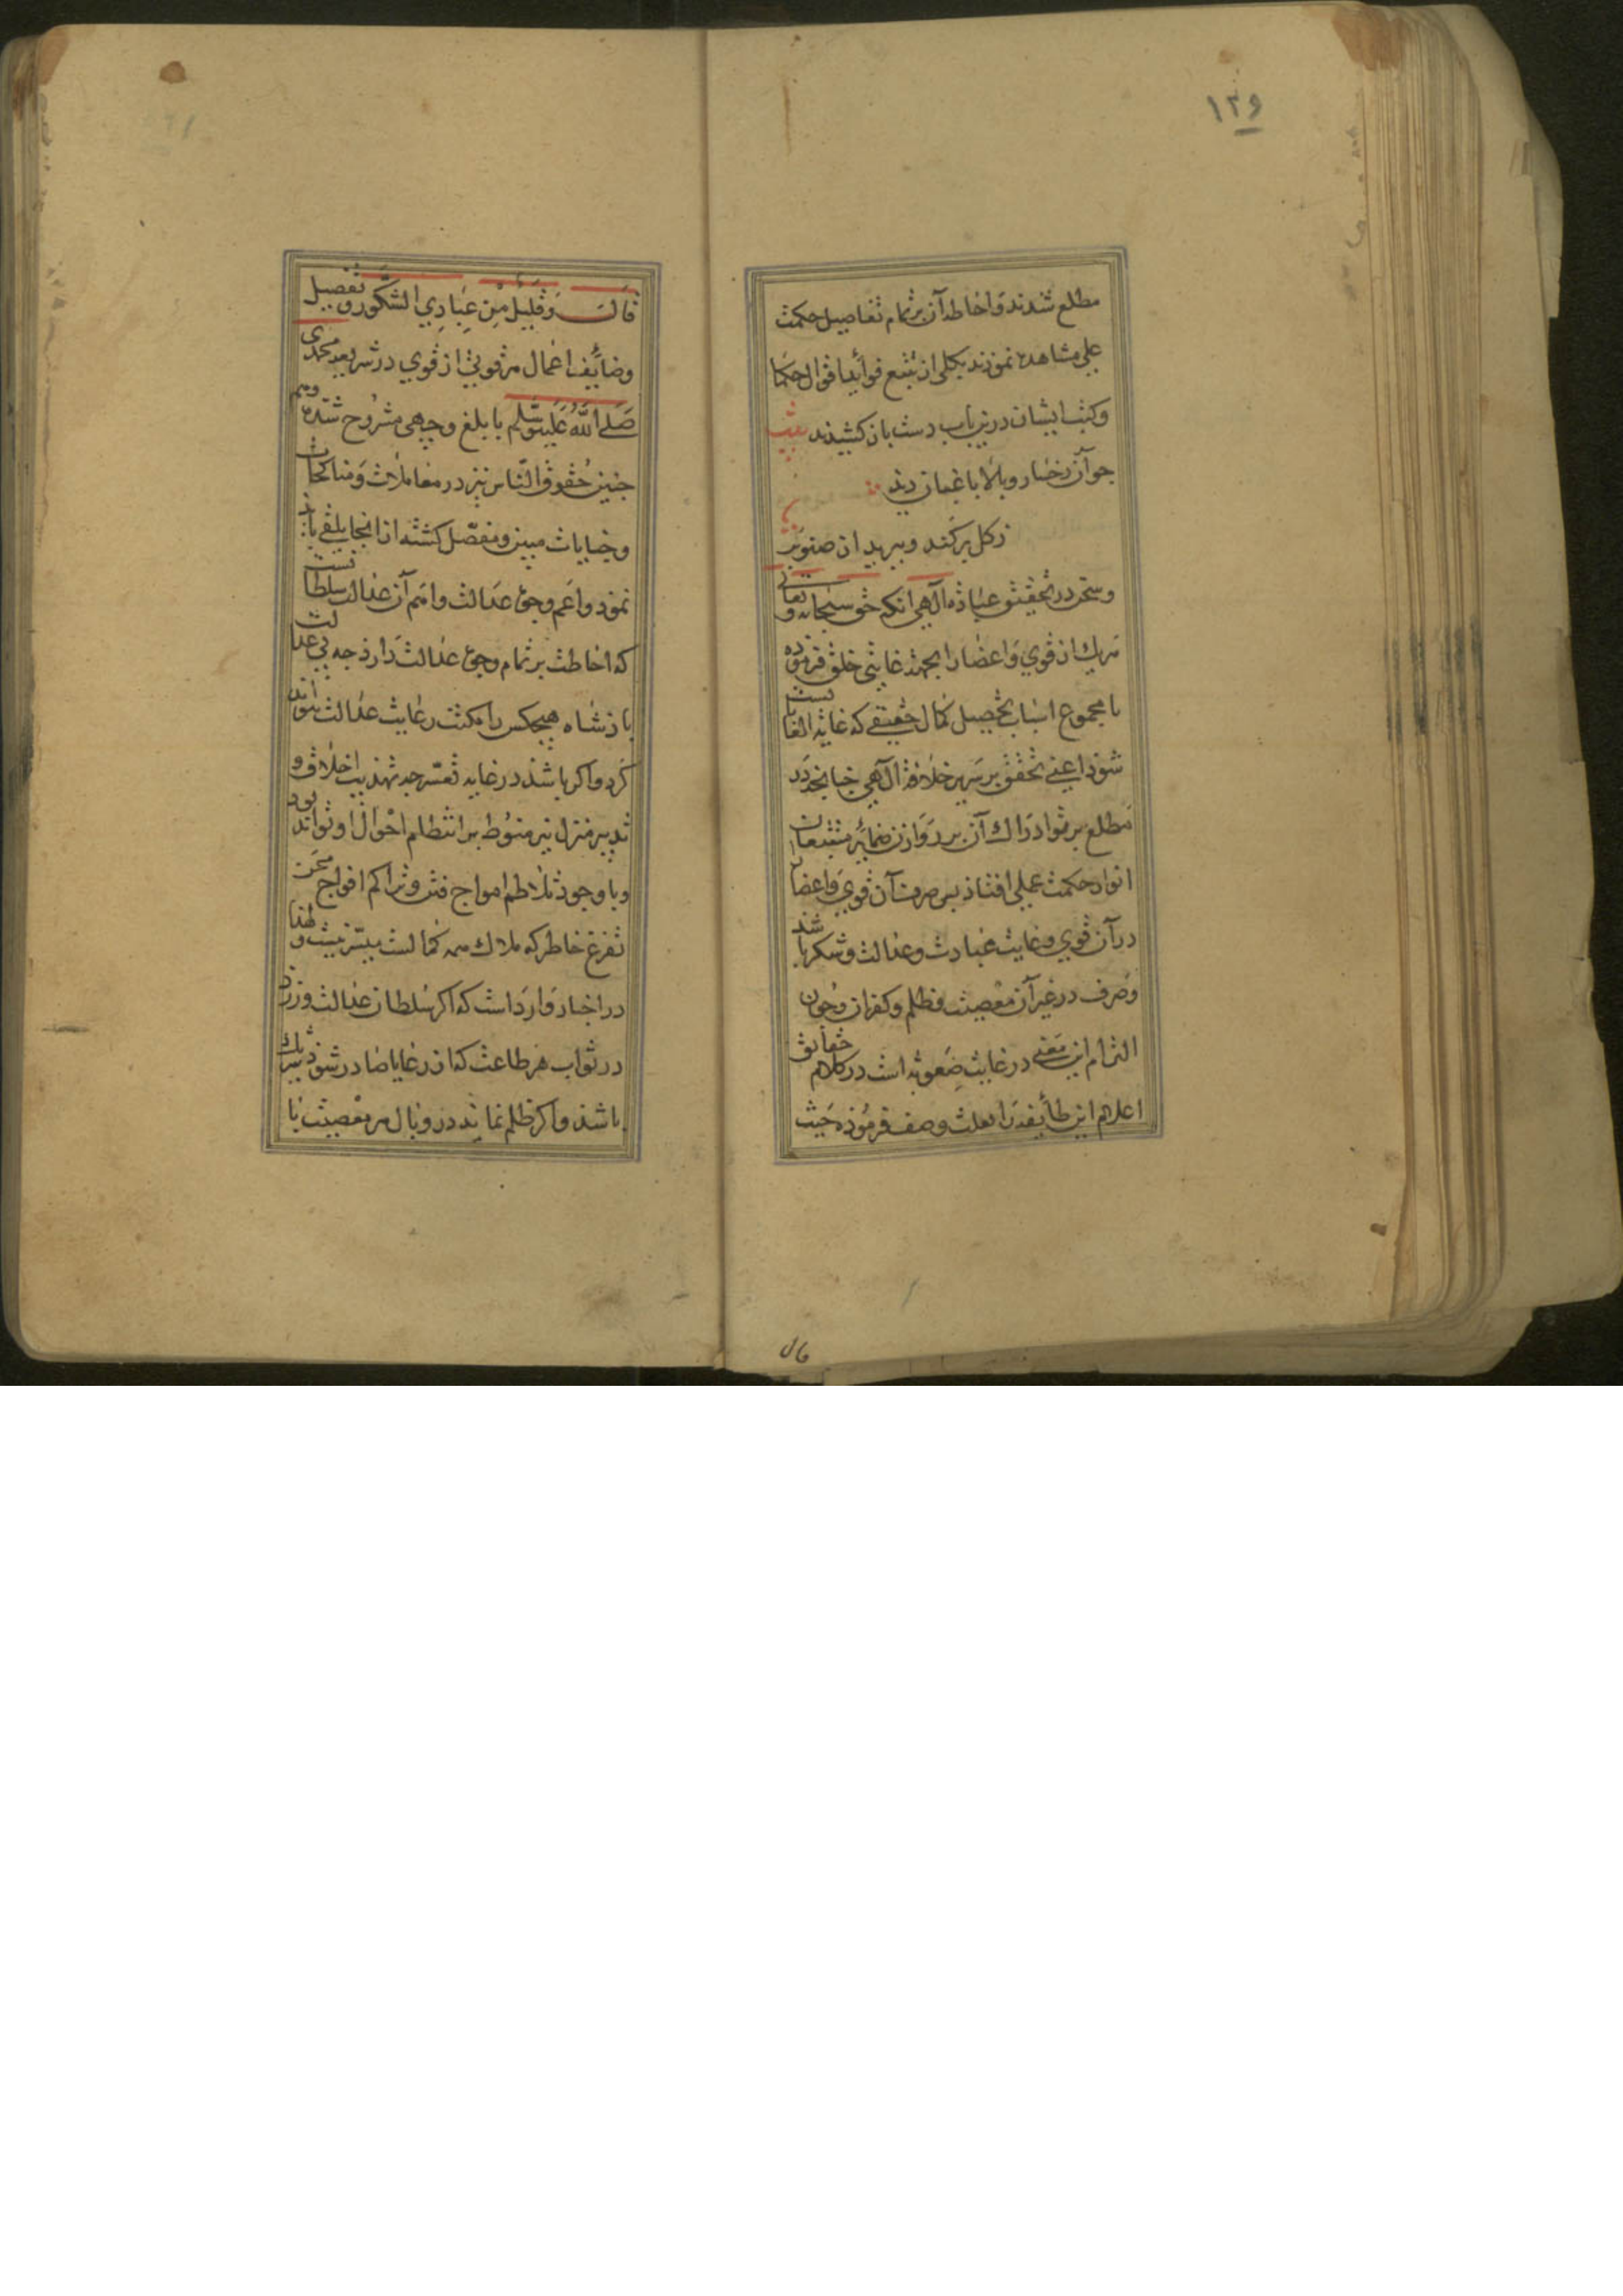 ١٢٩
مطلع شدند و احاطه آن بر تمام تفاصیل حکمت
عملی مشاهده نمودند بکلی از تتبع فوائد اقوال حکما
و کتب ایشان درین باب دست باز کشیدند بیت
چو آن رخسار و بالا باغبان دید
ز گل برکند و ببرید از صنوبر
و سخن در تحقیق عبادة الهی آنکه حق سبحانه و تعالی
هریک از قوی و اعضا را بجهت غایتی خلق فرموده
تا مجموع اسباب تحصیل کمال حقیقی که غایة الغایاتست
شود اعنی تحقق بر سریر خلافة الهی چنانچه در
مطلع پرتو ادراک آن بر روازن ضمایر مقتبسان
انوار حکمت عملی افتاد پس صرف آن قوی و اعضا
در آن قوی و غایت عبادت و عدالت و شکر باشد
و صرف در غیر آن معصیت و ظلم و کفران و چون
التزام این معنی در غایت صعوبة است در کلام حقایق
اعلام این طایفه را بقلت وصف فرموده حیث
قال وقلیل من عبادی الشکور و تفصیل
وضایف اعمال هر قوتی از قوی در شریعه محمدی
صلی الله علیه و سلم بابلغ وجهی مشروح شده و هم
چنین حقوق الناس نیز در معاملات و مناکحات
و جنایات مبین و مفصل کشته از انجا تلقی باید
نمود و اعم وجوه عدالت و اهم آن عدالت سلطانست
که احاطت بر تمام وجوه عدالت دارد چه بی عدالت
پادشاه هیچکس را مکنت رعایت عدالت نتواند
کرد و اکر باشد در غایه تعسر چه تهذیب اخلاق و
تدبیر منزل نیز منوط بر انتظام احوال او تواند بود
و با وجود تلاطم امواج فتن و تراکم افواج محن
تفرغ خاطر که ملاک همه کمالست میسر نیست و لهذا
در اخبار وارد است که اکر سلطان عدالت ورزد
در ثواب هر طاعت که از رعایا صادر شود شریک
باشد و اکر ظلم نماید در وبال هر معصیت با